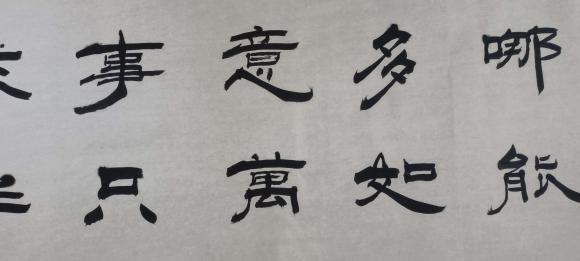 哪能
多如
意萬
事只